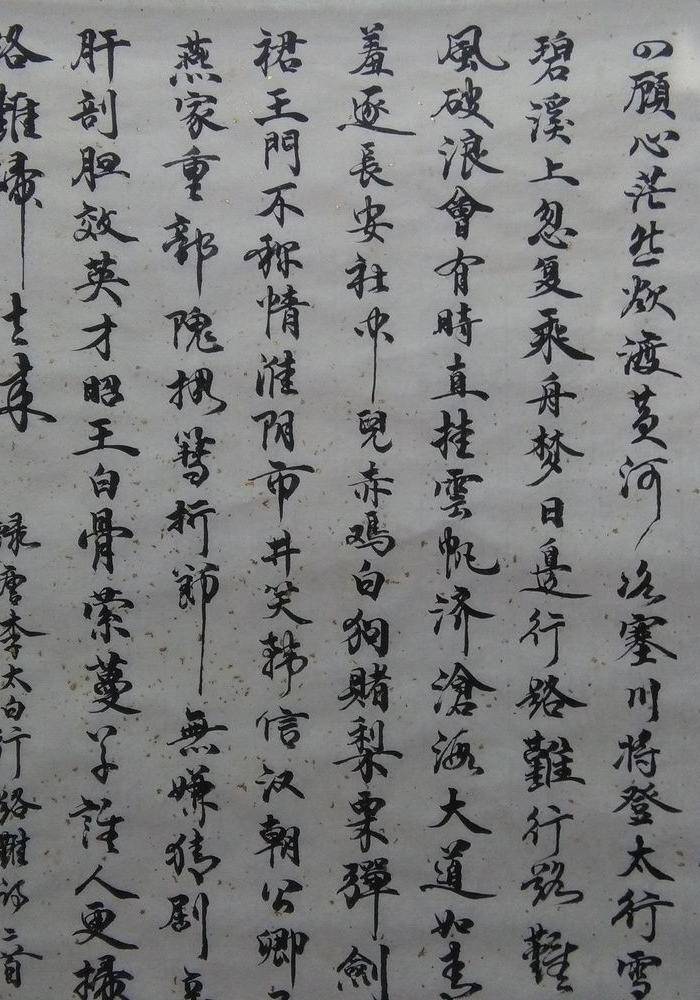 四顾心茫然欲渡黄河冰塞川将登太行雪
碧溪上忽复乘舟梦日邊行路難行路難
風破浪會有時直挂雲帆济滄海大道如青
羞逐長安社中兒赤鸡白狗賭梨栗彈劍
裾王門不称情淮阴市井笑韩信汉朝公卿
燕家重郭隗拥篲折節無嫌猜剧辛
肝剖胆效英才昭王白骨萦蔓草誰人更掃
路難歸去来
録唐李太白行路難詩二首